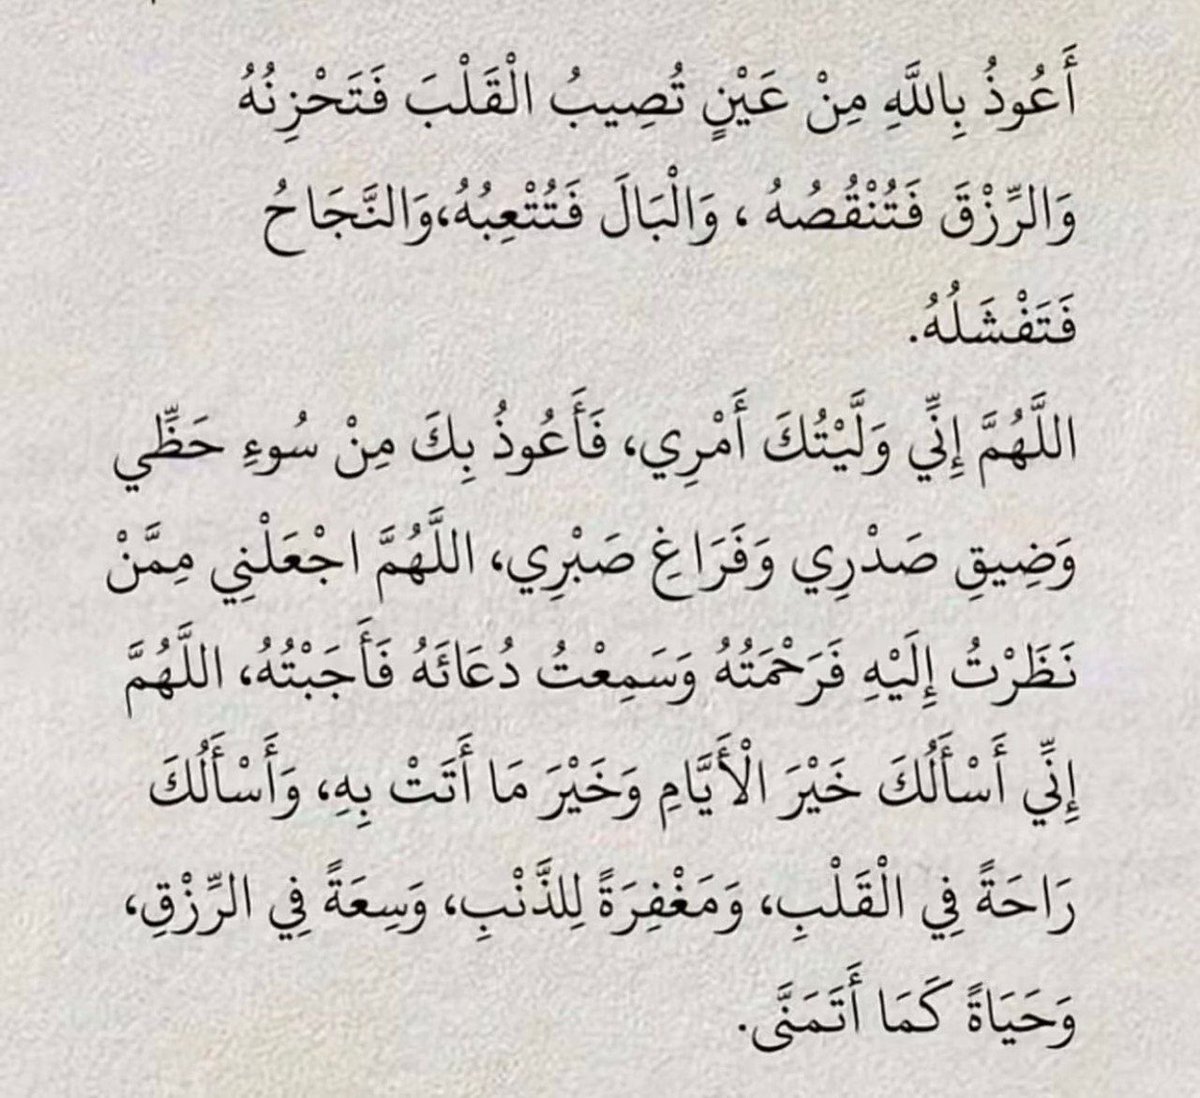 أَعُوذُ بِاللَّهِ مِنْ عَيْنٍ تُصِيبُ الْقَلْبَ فَتَحْزِنُهُ
وَالرِّزْقَ فَتُنْقُصُهُ ، وَالْبَالَ فَتُتْعِبُهُ،وَالنَّجَاحُ
فَتَفْشَلُهُ.
اللَّهُمَّ إِنِّي وَلَّيْتُكَ أَمْرِي، فَأَعُوذُ بِكَ مِنْ سُوءِ حَظِّي
وَضِيقِ صَدْرِي وَفَرَاغِ صَبْرِي، اللَّهُمَّ اجْعَلْنِي مِمَّنْ
نَظَرْتُ إِلَيْهِ فَرَحْمَتُهُ وَسَمِعْتُ دُعَائَهُ فَأَجَبْتُهُ، اللَّهُمَّ
إِنِّي أَسْأَلُكَ خَيْرَ الْأَيَّامِ وَخَيْرَ مَا أَتَتْ بِهِ، وَأَسْأَلُكَ
رَاحَةً فِي الْقَلْبِ، وَمَغْفِرَةً لِلذَّنْبِ، وَسِعَةً فِي الرِّزْقِ،
وَحَيَاةً كَمَا أَتَمَنَّى.